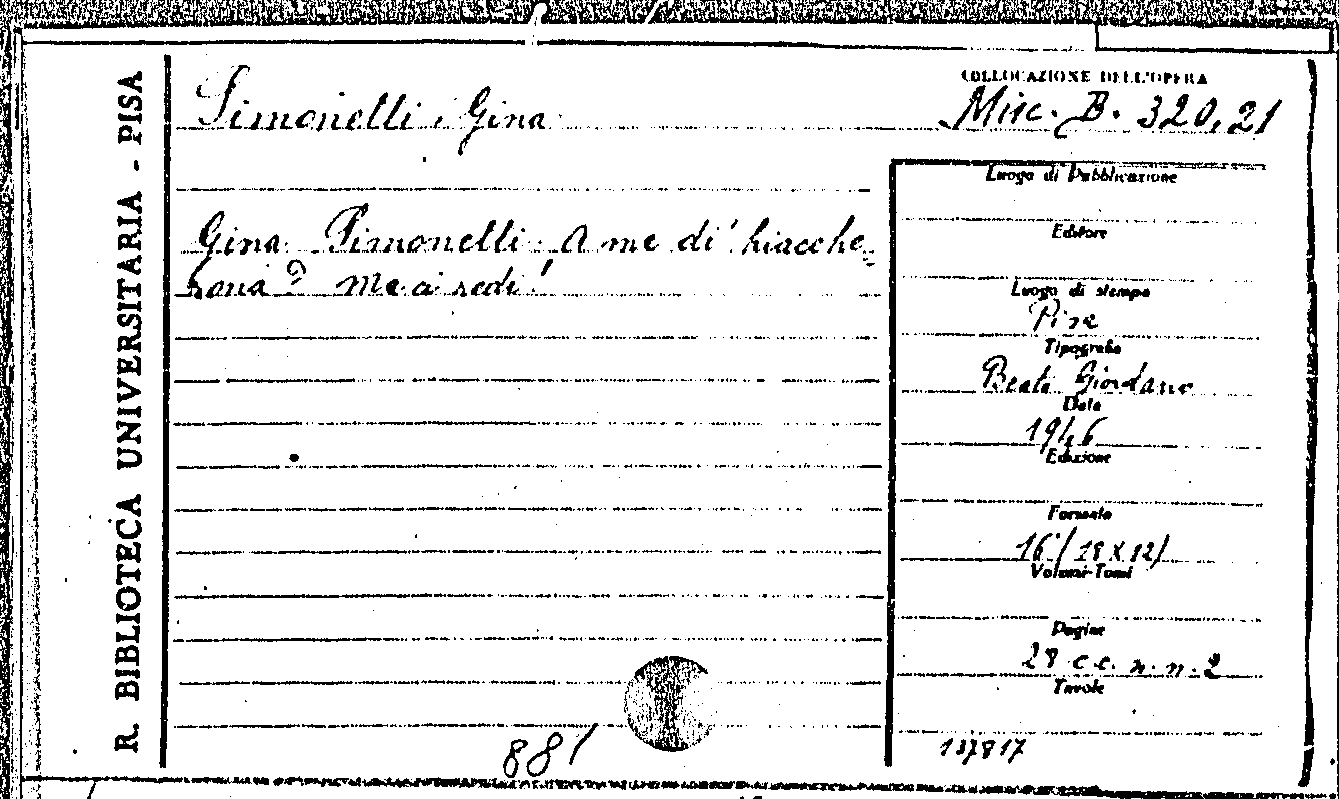 R. BIBLIOTECA UNIVERSITARIA - PISA
Simonelli, Gina
COLLOCAZIONE DELL'OPERA
Misc. B. 320.21
Gina Simonelli. A me di'
Luogo di Pubblicazione
Editore
Luogo di stampa
Pisa
Tipografia
Beato Giordano
Data
1946
Edizione
Formato
16°/18 x 12/
Volumi-Tomi
Pagine
28 c.c. n. n. 2
Tavole
137817
881